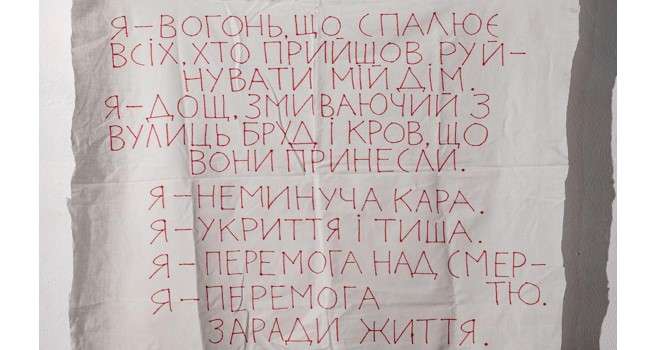 Я–ВОГОНЬ, ЩО СПАЛЮЄ
ВСІХ, ХТО ПРИЙШОВ РУЙ–
НУВАТИ МІЙ ДІМ.
Я–ДОЩ, ЗМИВАЮЧИЙ З
ВУЛИЦЬ БРУД І КРОВ, ЩО
ВОНИ ПРИНЕСЛИ.
Я–НЕМИНУЧА КАРА.
Я–УКРИТТЯ І ТИША.
Я–ПЕРЕМОГА НАД СМЕР–
ТЮ.
Я–ПЕРЕМОГА
ЗАРАДИ ЖИТТЯ.